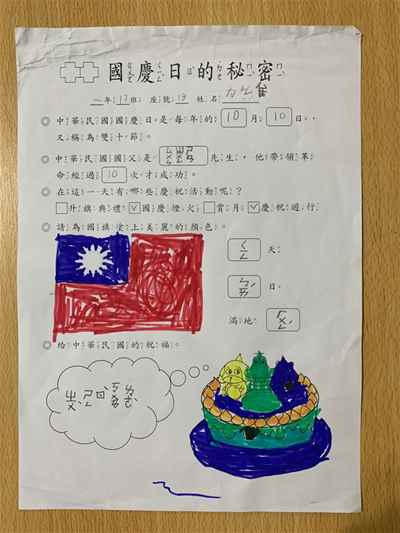 國慶日的秘密
一年17班 座號19 姓名
◎ 中華民國國慶日是每年的 10 月 10 日，
又稱為雙十節。
◎ 中華民國國父是 先生，他帶領革
命經過 10 次才成功。
◎ 在這一天有哪些慶祝活動呢？
□升旗典禮 ☑國慶煙火 □賞月 ☑慶祝遊行
◎ 請為國旗塗上美麗的顏色。
ㄑㄧㄥ 天：
日：
滿地：
◎ 給中華民國的祝福。